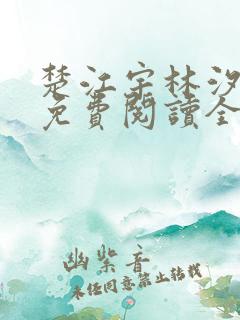 楚江宇林汐
免費閱讀全
幽紫音
未经同意禁止转载